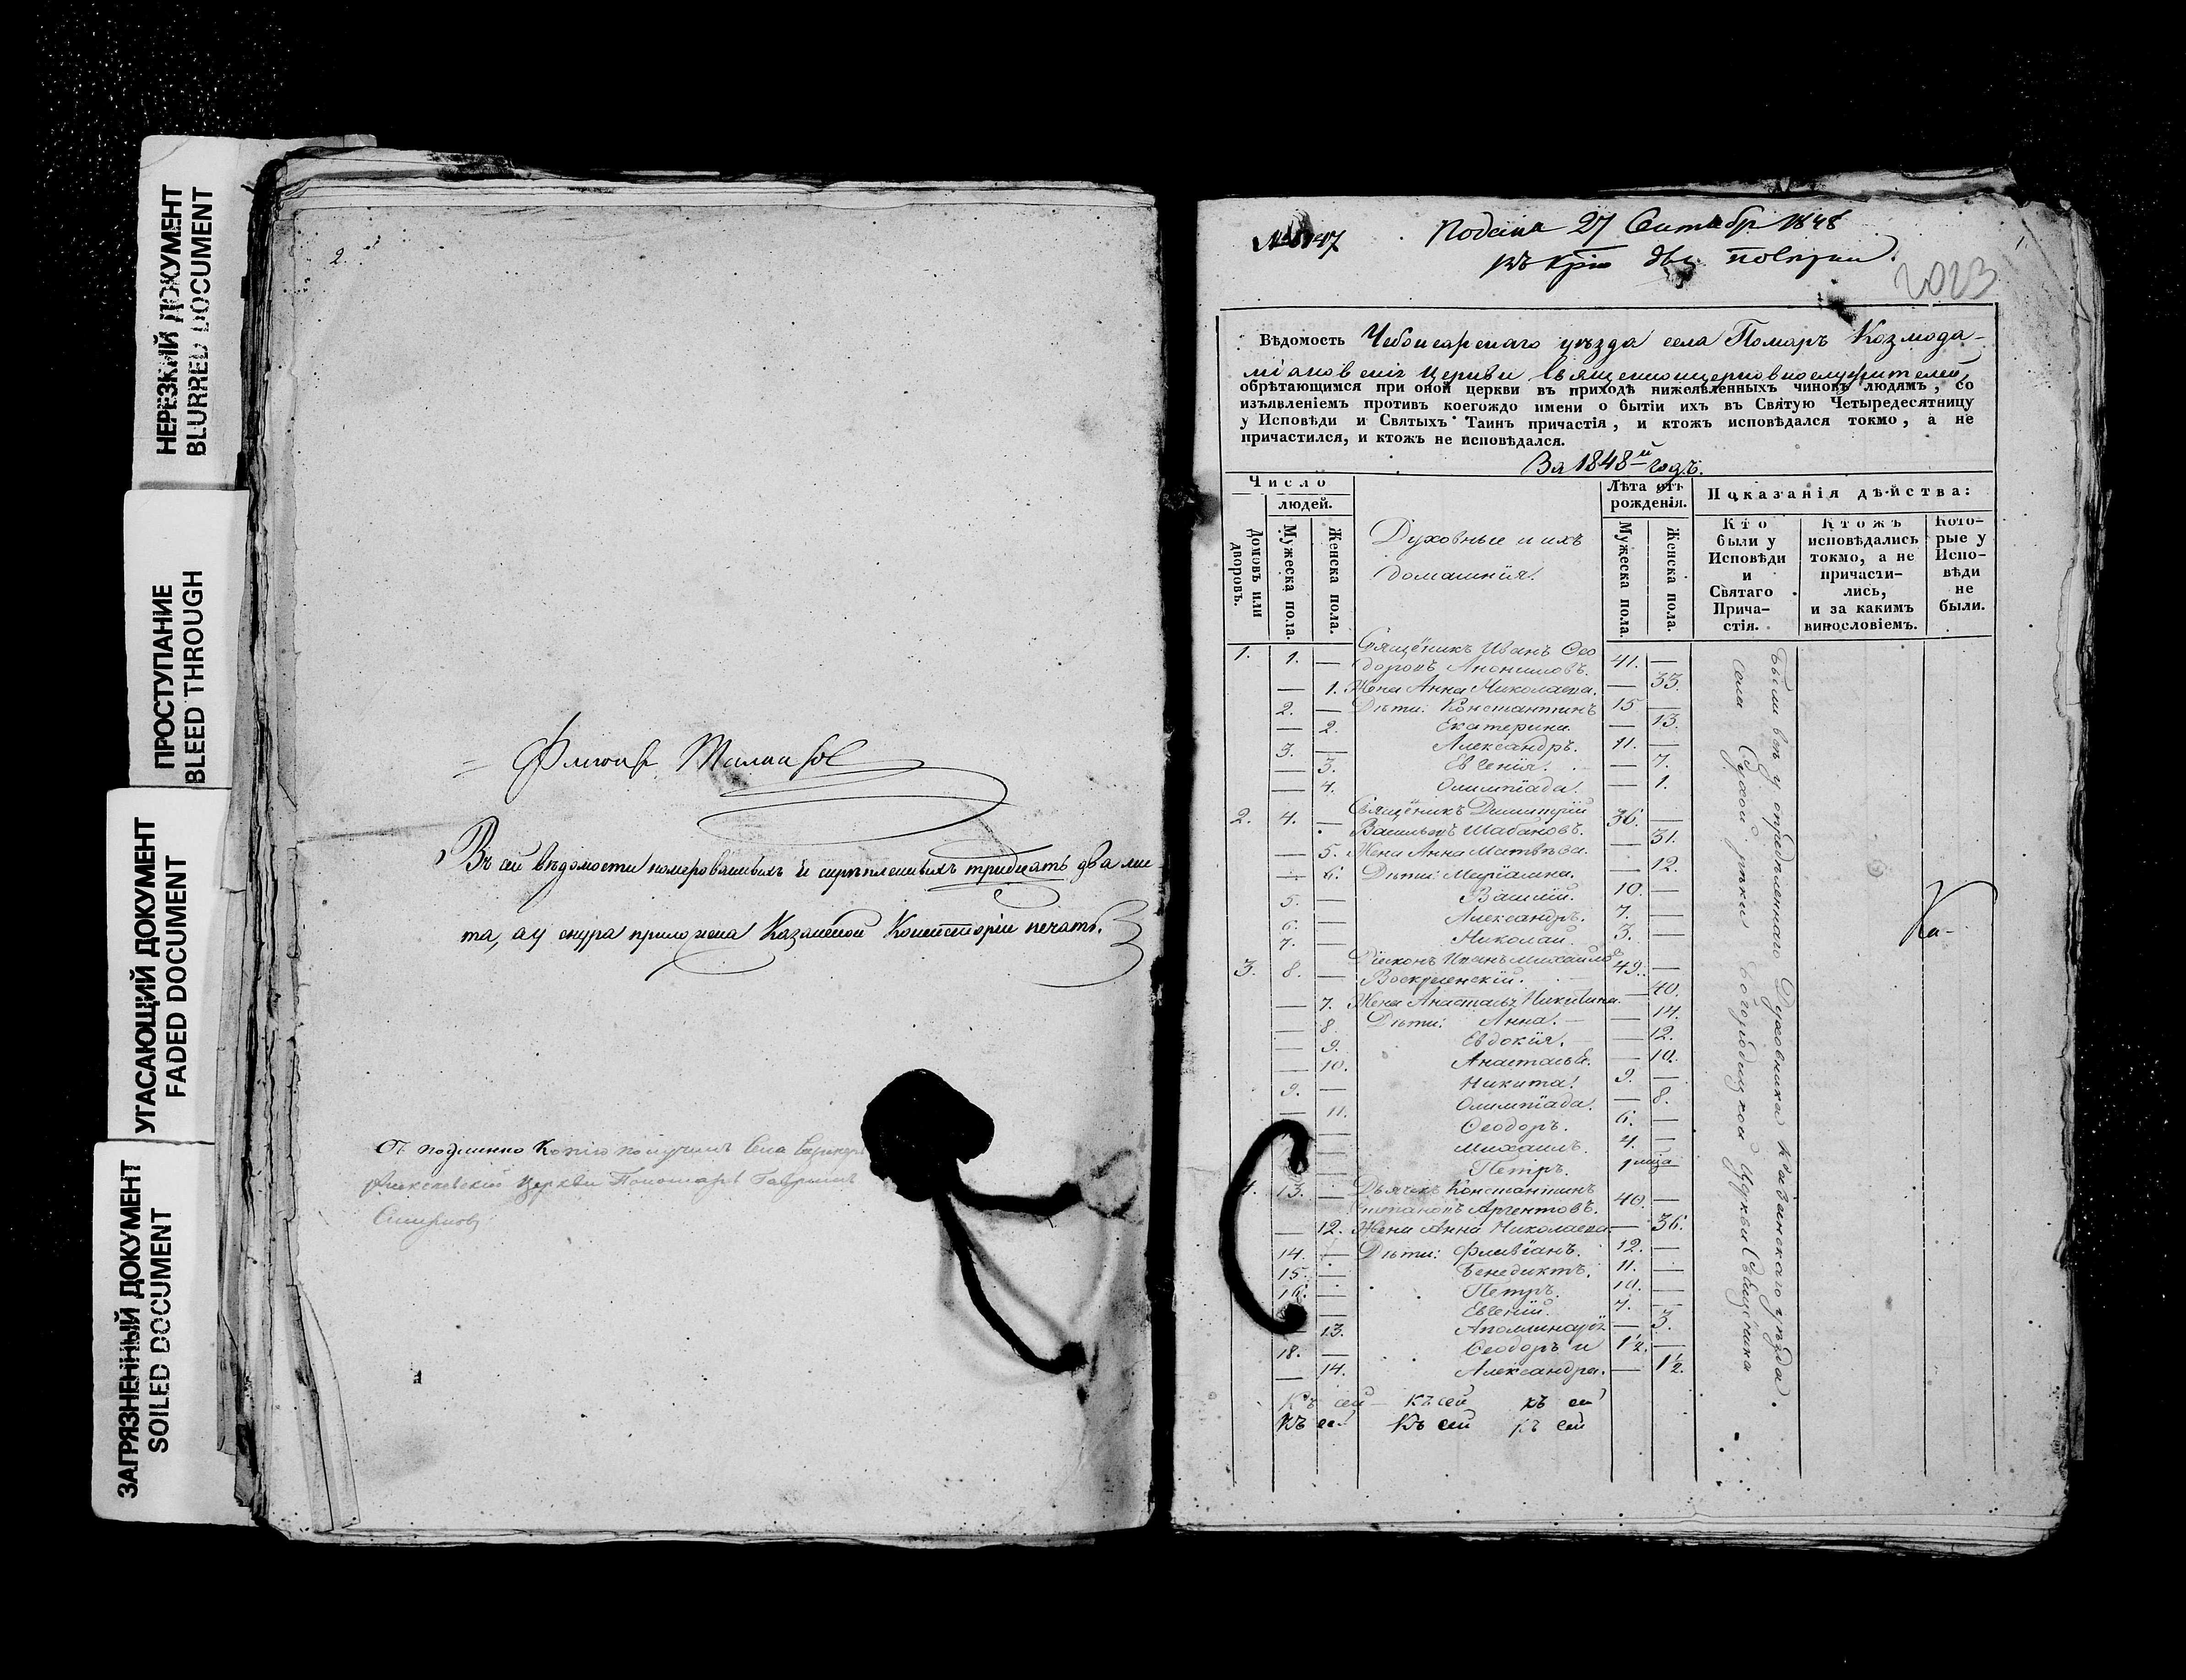 НЕРЕЗКИЙ ДОКУМЕНТ
BLURRED DOCUMENT
ПРОСТУПАНИЕ
BLEED THROUGH
УГАСАЮЩИЙ ДОКУМЕНТ
FADED DOCUMENT
ЗАГРЯЗНЕННЫЙ ДОКУМЕНТ
SOILED DOCUMENT
2.
Въ сей вѣдомости номерованныхъ и скрѣпленныхъ тридцать два лис
та, а у снура приложена Казанской Консисторіи печать.
подлинно Копію получилъ Села
Алексѣевской Церкви Пономарь Гаврiилъ
Смирновъ
Подана 27 Сентябр 1848
2023
1
Вѣдомость Чебоксарскаго уѣзда села Помаръ Козмода-
міановскія Церкви Священноцерковнослужителей,
обрѣтающимся при оной церкви въ приходѣ нижеявленныхъ чиновъ людямъ, со
изъявленіемъ противъ коегождо имени о бытіи ихъ въ Святую Четыредесятницу
у Исповѣди и Святыхъ Таинъ причастія, и ктожъ исповѣдался токмо, а не
причастился, и ктожъ не исповѣдался.
За 1848й годъ.
Число
людей.
Домовъ или дворовъ.
Мужеска пола.
Женска пола.
Духовные и ихъ
домашнія.
Лѣта отъ
рожденія.
Мужеска пола.
Женска пола.
Показанія дѣйства:
Кто
были у
Исповѣди
и
Святаго
Прича-
стія.
Ктожъ
исповѣдались
токмо, а не
причасти-
лись,
и за какимъ
винословіемъ.
Кото-
рые у
Испо-
вѣди
не
были.
1. 1. — Священникъ Иванъ Ѳео
доровъ Анонимовъ. 41. —
— 1. Жена Анна Николаева. — 33.
2. — Дѣти: Константинъ 15 —
— 2. Екатерина. — 13.
3. — Александръ. 11. —
— 3. Евгенія. — 7.
— 4. Олимпіада. — 1.
2. 4. — Священникъ Димитрій
Васильевъ Шабановъ. 36. —
— 5. Жена Анна Матвѣева. — 31.
— 6. Дѣти: Маріамна. — 12.
5. — Василій. 10. —
6. — Александръ. 7. —
7. — Николай. 3. —
3. 8. — Діаконъ Иванъ Михайловъ
Воскресенскій. 49. —
— 7. Жена Анастасья Никитина. — 40.
— 8. Дѣти: Анна. — 14.
— 9. Евдокія. — 12.
— 10. Анастасья. — 10.
9. — Никита. 9. —
— 11. Олимпіада. — 8.
Ѳеодоръ. 6. —
Михаилъ. 4. —
Петръ. 1 мца
4. 13. — Дьячекъ Константинъ
Степановъ Аргентовъ. 40. —
— 12. Жена Анна Николаева — 36.
14. — Дѣти: Флавіанъ. 12. —
15. — Венедиктъ. 11. —
16. — Петръ. 10. —
Евгеній. 7. —
— 13. Аполлинарія — 3.
18. — Ѳеодоръ и 1½. —
— 14. Александра. — 1½.
Къ сей Къ сей къ сей
Къ сей Къ сей къ сей
Были всѣ у опредѣленнаго Духовника
села Сухой рѣки Богородицкой Церкви Священника
Ка-